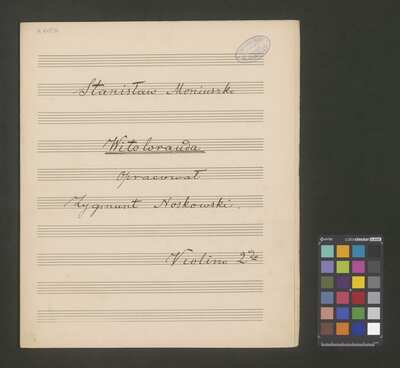 Stanisław Moniuszko
Witolorauda
Opracował
Zygmunt Noskowski.
Violino 2do